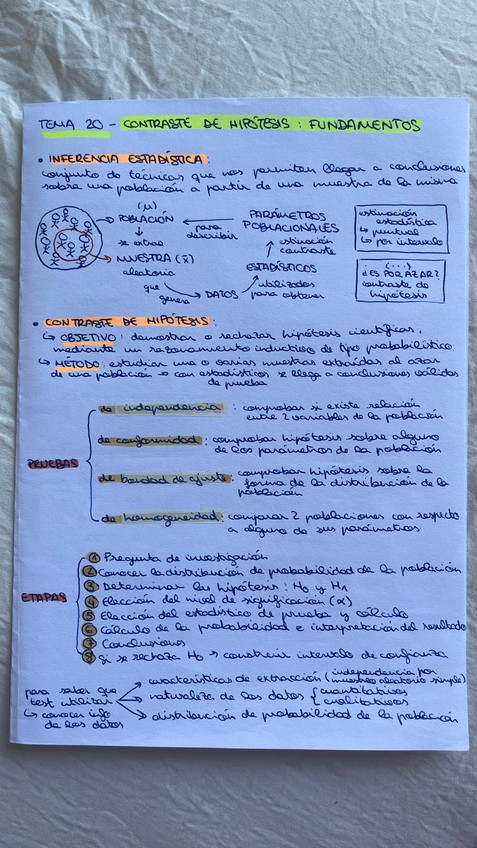 TEMA 20 - CONTRASTE DE HIPÓTESIS : FUNDAMENTOS
• INFERENCIA ESTADÍSTICA :
conjunto de técnicas que nos permiten llegar a conclusiones
sobre una población a partir de una muestra de la misma
(μ)
→ POBLACIÓN
↳ se extrae
→ MUESTRA (x̄)
aleatoria
que genera → DATOS
utilizados para obtener
ESTADÍSTICOS
↑ estimación
contraste
PARÁMETROS
POBLACIONALES
para describir
estimación
estadística
↳ puntual
↳ por intervalo
(...)
¿ES POR AZAR?
contraste de
hipótesis
• CONTRASTE DE HIPÓTESIS :
↳ OBJETIVO : demostrar o rechazar hipótesis científicas,
mediante un razonamiento inductivo de tipo probabilístico
↳ MÉTODO : estudiar una o varias muestras extraídas al azar
de una población → con estadísticos se llega a conclusiones válidas
de prueba
PRUEBAS
de independencia : comprobar si existe relación
entre 2 variables de la población
de conformidad : comprobar hipótesis sobre alguno
de los parámetros de la población
de bondad de ajuste : comprobar hipótesis sobre la
forma de la distribución de la
población
de homogeneidad : comparar 2 poblaciones con respecto
a alguno de sus parámetros
ETAPAS
1 Pregunta de investigación
2 Conocer la distribución de probabilidad de la población
3 Determinar las hipótesis : H0 y H1
4 Elección del nivel de significación (α)
5 Elección del estadístico de prueba y cálculo
6 Cálculo de la probabilidad e interpretación del resultado
7 Conclusiones
8 Si se rechaza H0 → construir intervalo de confianza
para saber que
test utilizar
↳ conocer info
de los datos
características de extracción (independencia por
muestreo aleatorio simple)
naturaleza de los datos { cuantitativos
cualitativos
distribución de probabilidad de la población